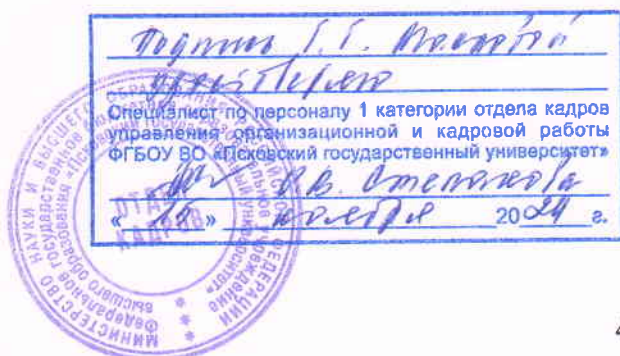 Подпись Г. Г.
удостоверяю
Специалист по персоналу 1 категории отдела кадров
управления организационной и кадровой работы
ФГБОУ ВО «Псковский государственный университет»
В. Степанова
« 15 » ноября 2024 г.
МИНИСТЕРСТВО НАУКИ И ВЫСШЕГО ОБРАЗОВАНИЯ РОССИЙСКОЙ ФЕДЕРАЦИИ
Федеральное государственное бюджетное образовательное учреждение
высшего образования «Псковский государственный университет»
ОТДЕЛ
КАДРОВ